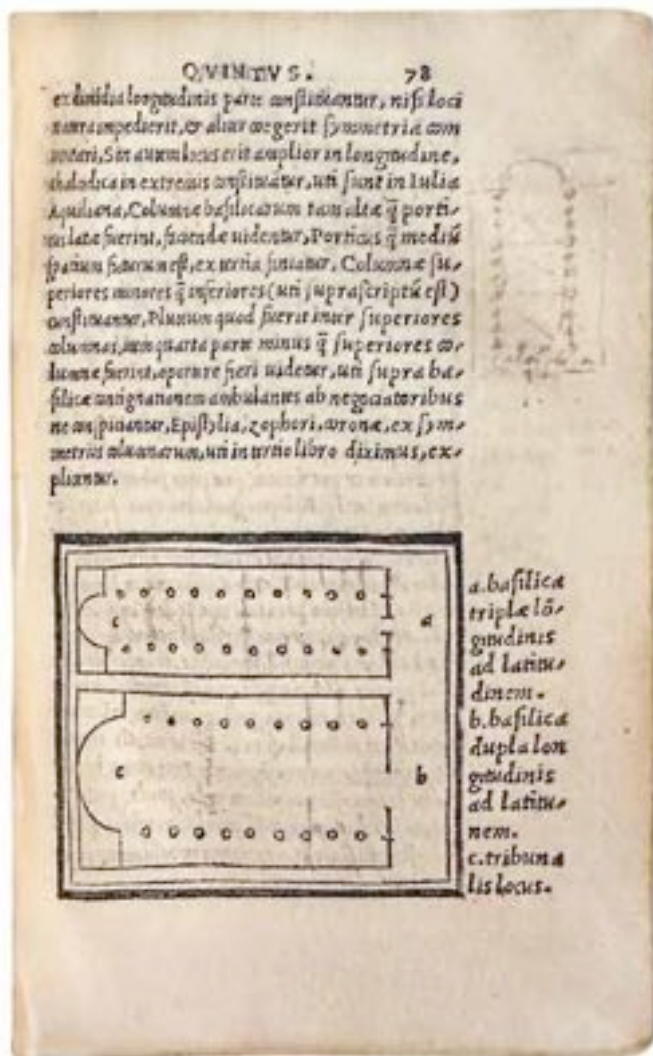 QVINTVS. 78
ex dimidia longitudinis parte constituantur, nisi loci
natura impedierit, & aliter coegerit symmetria com
mutari, Sin autem locus erit amplior in longitudine,
chalcidica in extremis constituantur, uti sunt in Iulia
Aquiliana, Columnæ basilicarum tam altæ q̃ porti-
cus latæ fuerint, faciendæ uidentur, Porticus q̃ mediũ
spatium futurum est, ex tertia finiatur, Columnæ su-
periores minores q̃ inferiores (uti suprascriptũ est)
constituantur, Pluteum quod fuerit inter superiores
columnas, item quarta parte minus q̃ superiores co-
lumnæ fuerint, oportere fieri uidetur, uti supra ba-
silicæ contignationem ambulantes ab negociatoribus
ne conspiciantur, Epistylia, zophori, coronæ, ex sym-
metriis columnarum, uti in tertio libro diximus, ex-
plicantur.
c a
c b
a. basilica
triplæ lõ-
gitudinis
ad latitu-
dinem.
b. basilica
dupla lon
gitudinis
ad latitu-
nem.
c. tribuna
lis locus.